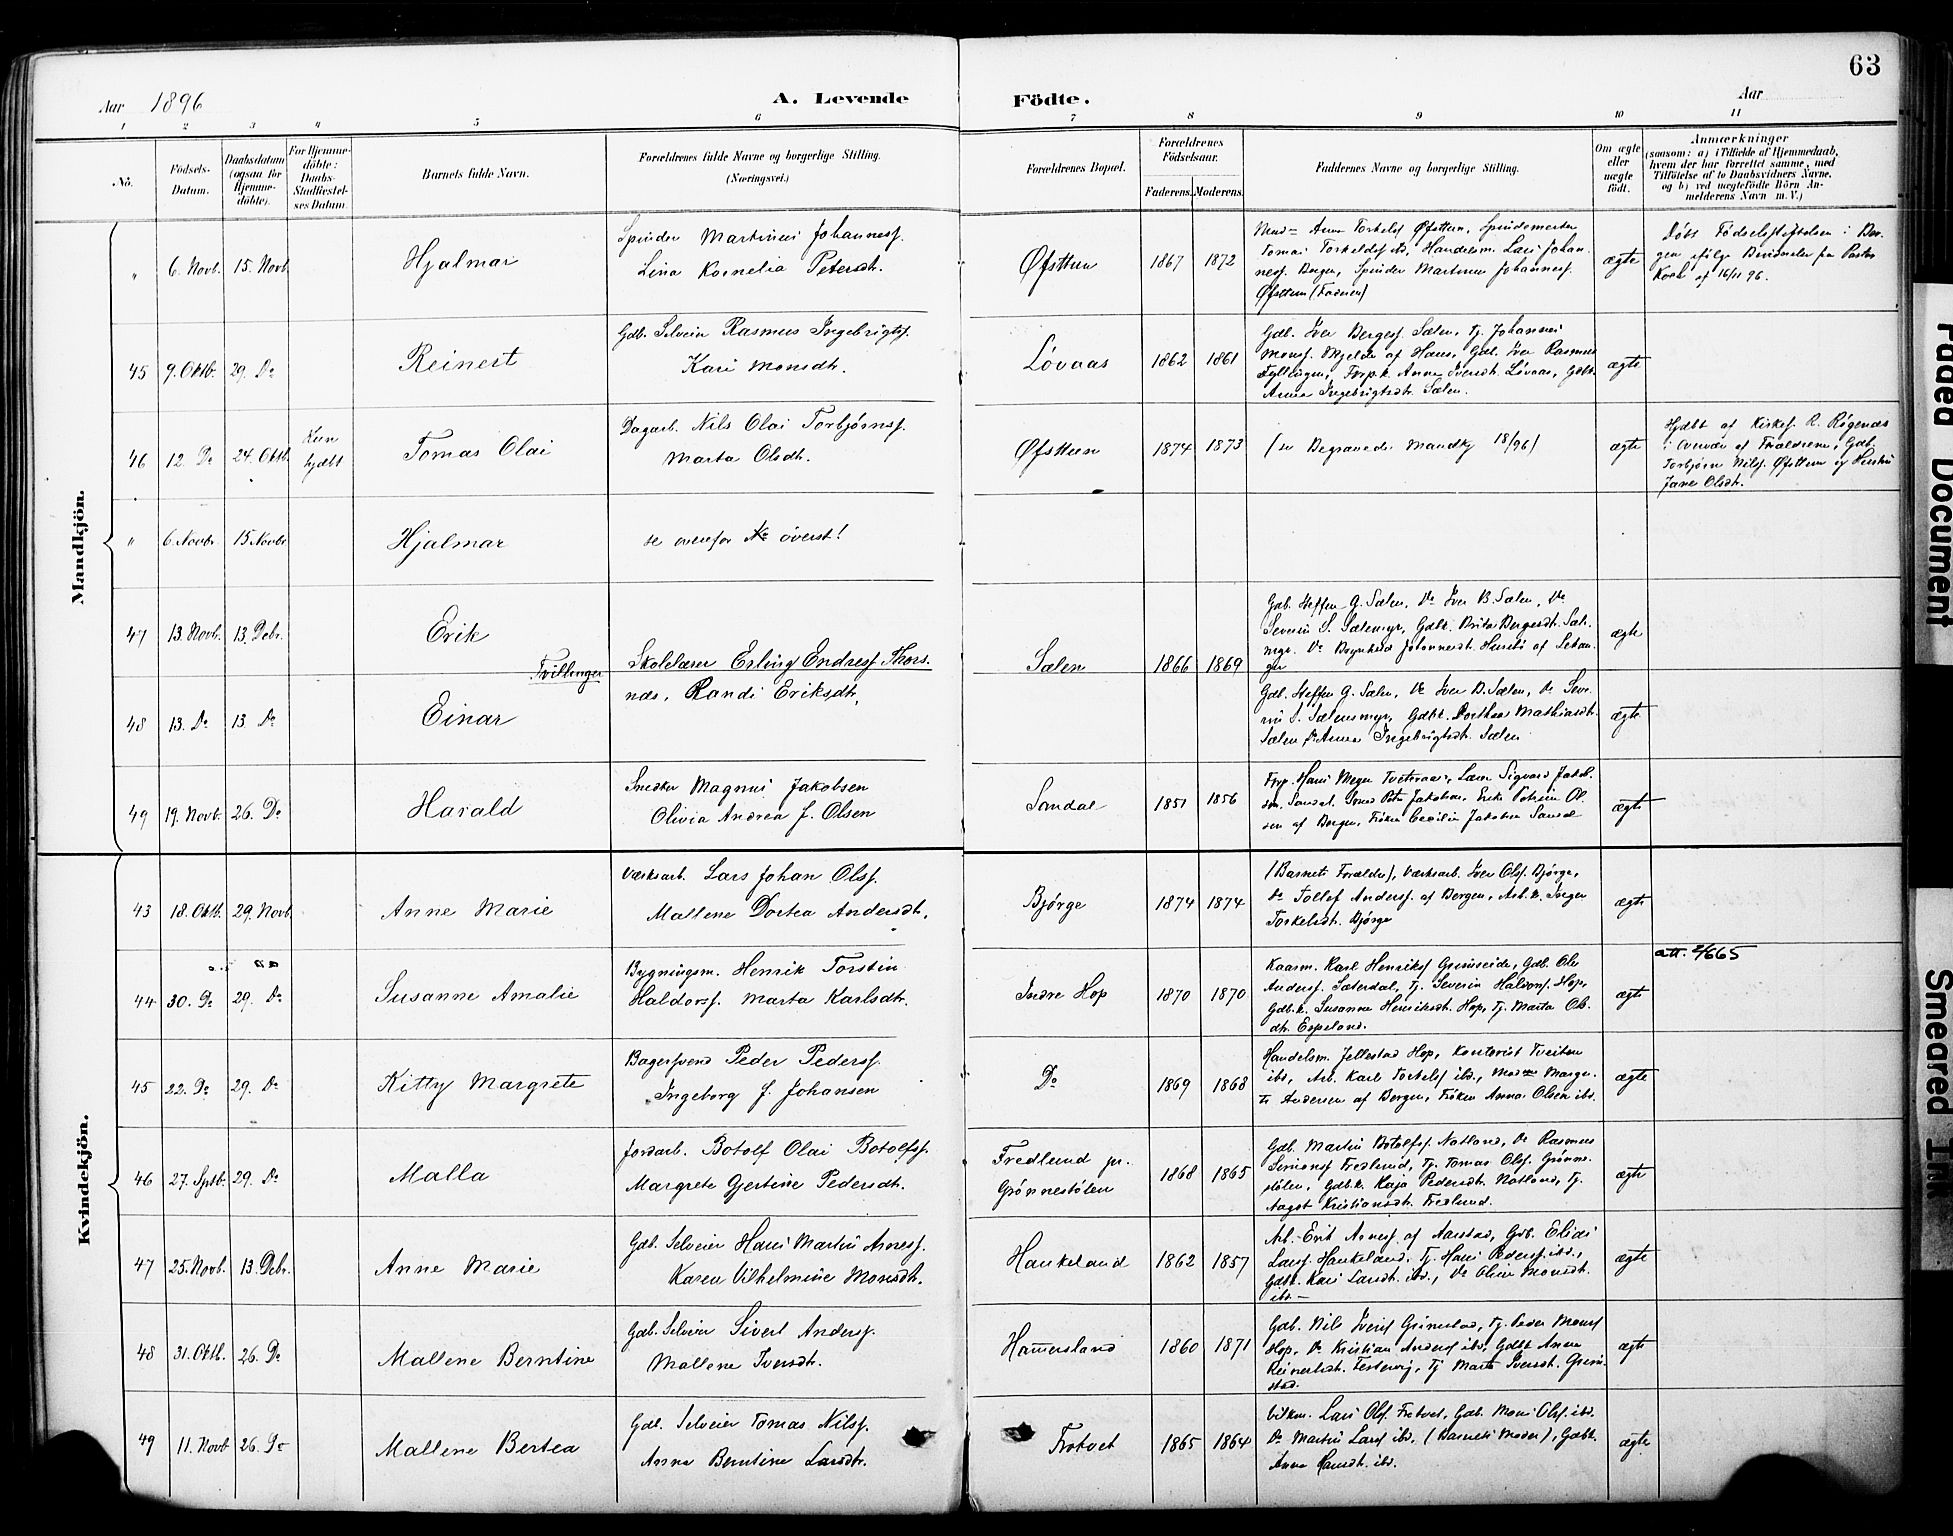 63
Aar 1896
A. Levende Födte.
Aar
1 2 3 4 5 6 7 8 9 10 11
No.
Födsels-Datum.
Daabsdatum (ogsaa for Hjemme-döbte).
For Hjemme-döbte: Daabs-Stadfæstel-ses Datum.
Barnets fulde Navn.
Forældrenes fulde Navne og borgerlige Stilling. (Næringsvei.)
Forældrenes Bopæl.
Forældrenes Födselsaar.
Faderens. Moderens.
Faddernes Navne og borgerlige Stilling.
Om ægte eller uægte födt.
Anmærkninger
(saasom: a) i Tilfælde af Hjemmedaab, hvem der har forrettet samme, med Tilföielse af to Daabsvidners Navne, og b) ved uægtefödte Börn Anmelderens Navn m. V.)
Mandkjön.
" 6. Novb. 15. Novb. Hjalmar
Spinder Martinus Johannesf.
Lina Kornelia Petersdt.
Øfsttun 1867 1872
Tomas Torkeldsf. do, Handelsm. Lars Johannesf. Bergen, Spinder Martinus Johannesf.
Øfsttun (Faderen)
ægte
Døbt Fødselsstiftelsen i Bergen ifølge Bevidnelse fra Pastor Koch af 16/11 96.
45 9. Oktb. 29. Do Reinert
Gdb. Selveier Rasmus Ingebrigtsf.
Kari Monsdt.
Løvaas 1862 1861
Gdb. Iver Bergesf. Sælen, Tj. Johannes
Monsf. Mjelde af Haus, Gdb. Iver Rasmusf
Fyllingen, Forp.k. Anna Iversdt. Løvaas, Gdbt.
Anna Ingebrigtsdt. Sælen.
ægte
46 12. Do 24. Oktb. Kun hjdbt Tomas Olai
Dagarb. Nils Olai Torbjørnsf.
Marta Olsdt.
Øfsttun 1874 1873
(se Begravede Mandkj 18/96)
ægte
Hjdbt af Kirkes. R. Røgenæs
i Overvær af Forældrene, Gdb.
Torbjørn Nilsf. Øfsttun og Hustru
Jane Olsdt.
" 6. Novbr. 15 Novbr Hjalmar
se ovenfor No øverst!
47 13. Novb. 13. Debr. Erik
Tvillinger
Skolelærer Erling Endresf. Thors-
næs, Randi Eriksdt,
Sælen 1866 1869
Gdb. Steffen G. Sælen, Do Iver B. Sælen, Do
Severin S. Sælemyr, Gdbk. Brita Bergesdt. Sæle-
myr. Do Johannesdt.
ægte
48 13. Do 13. Do Einar
Gdb. Steffen G. Sælen, Do Iver B. Sælen, Do Seve-
rin S. Sælensmyr, Gdbk. Dorthea Mathiasdt.
Sælen Do Anna Ingebrigtsdt. Sælen
ægte
49 19. Novb. 26. Do Harald
Snedker Magnus Jakobsen
Olivia Andrea f. Olsen
Sandal 1851 1856
Forp. Hans Meyer Tveteraas, Lærer Sigvard Jakob-
sen. Sandal. Smed Peter Jakobsen, Enke Petrine Ol-
sen af Bergen, Frøken Cecilie Jakobsen Sandal
ægte
Kvindekjön.
43 18. Oktb. 29. Novb. Anne Marie
Værksarb. Lars Johan Olsf.
Mallene Dortea Andersdt,
Bjørge 1874 1874
(Barnets Forældre), Værksarb. Iver Olsf. Bjørge,
Do Tollef Andersf. af Bergen, Arb.k. Inger
Torkelsdt. Bjørge
ægte
44 30. Do 29. Do Susanne Amalie
Bygningsm. Henrik Torstin
Haldorsf. Marta Karlsdt.
Indre Hop 1870 1870
Kaarm. Karl Henriksf Grimseide, Gdb. Ole
Andersf. Sæterdal, Tj. Severin Haldorsf. Hop,
Gdb.k. Susanne Henriksdt. Hop, Tj. Marta Ols-
dt. Espeland.
ægte
att. 2/665
45 22. Do 29. Do Kitty Margrete
Bagersvend Peder Pedersf.
Ingeborg f. Johansen
Do 1869 1868
Handelsm. Jellestad Hop, Kontorist Tveiten
ibd, Arb. Karl Torkelsf ibd., Madme Margre-
te Andersen af Bergen, Frøken Anna Olsen ibd.
ægte
46 27. Septb. 29. Do Malla
Jordarb. Botolf Olai Botolfsf.
Margrete Gjertine Pedersdt.
Fredlund pr. Grønnestølen 1868 1865
Gdb. Martin Botolfsf. Natland, Do Rasmus
Simonsf Fredlund, Tj. Tomas Olsf. Grønne-
stølen, Gdb.k. Kaja Pedersdt. Natland, Tj.
Aagot Kristiansdt. Fredlund.
ægte
47 25. Novb. 13. Debr. Anne Marie
Gdb. Selveier Hans Martin Arnesf.
Karen Vilhelmine Monsdt.
Haukeland 1862 1857
Arb. Erik Arnesf. af Aarstad, Gdb. Elias
Larsf. Haukeland, Tj. Hans Pedersf. ibd.,
Gdbk. Kari Larsdt. ibd., Do Oline Monsdt.
ibd.
ægte
48 31. Oktb. 26. Do Mallene Berntine
Gdb. Selveier Sivert Andersf.
Mallene Iversdt.
Hamersland 1860 1871
Gdb. Nils Iversf Grimstad, Tj. Peder Monsf
Hop, Do Kristian Andersf ibd, Gdbk Anna
Reinertsdt. Festervig, Tj Marta Iversdt. Grim-
stad.
ægte
49 11. Novb 26. Do Mallene Bertea
Gdb. Selveier Tomas Nilsf.
Anna Berntine Larsdt.
Trotvet 1865 1864
Vilkm. Lars Olsf. Trotvet, Gdb. Mons Olsf. ibd.
Do Martin Larsf ibd. (Barnets Moder), Gdbk.
Anna Hansdt. ibd.
ægte
Faded Document
Smeared Ink